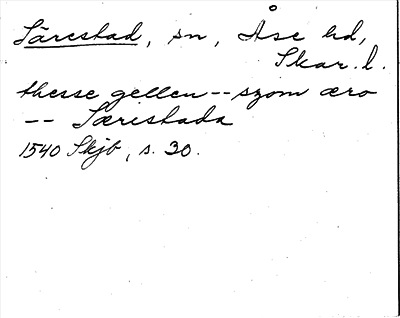 Särestad, sn, Åse hd,
Skar. l.
thesse gellen -- szom æro
-- Særistada
1540 Skjb, s. 30.